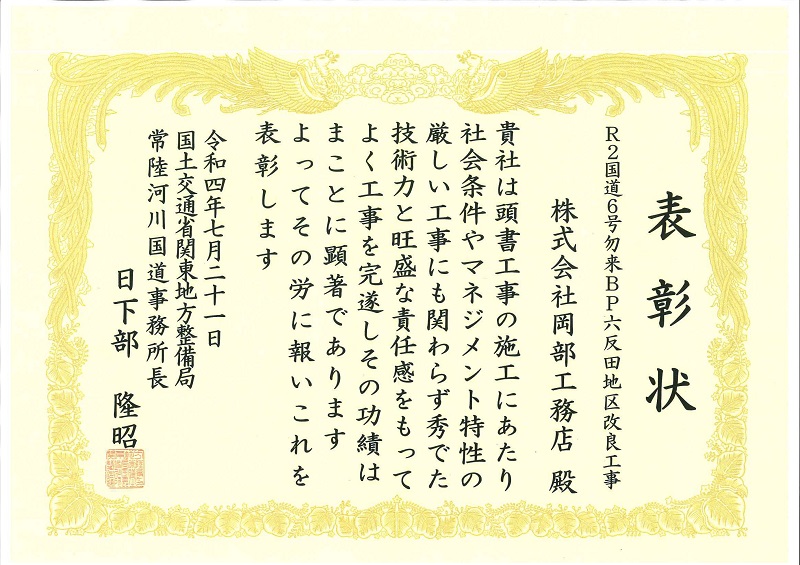 表彰状
R2国道6号勿来BP六反田地区改良工事
株式会社岡部工務店 殿
貴社は頭書工事の施工にあたり
社会条件やマネジメント特性の
厳しい工事にも関わらず秀でた
技術力と旺盛な責任感をもって
よく工事を完遂しその功績は
まことに顕著であります
よってその労に報いこれを
表彰します
令和四年七月二十一日
国土交通省関東地方整備局
常陸河川国道事務所長
日下部 隆昭